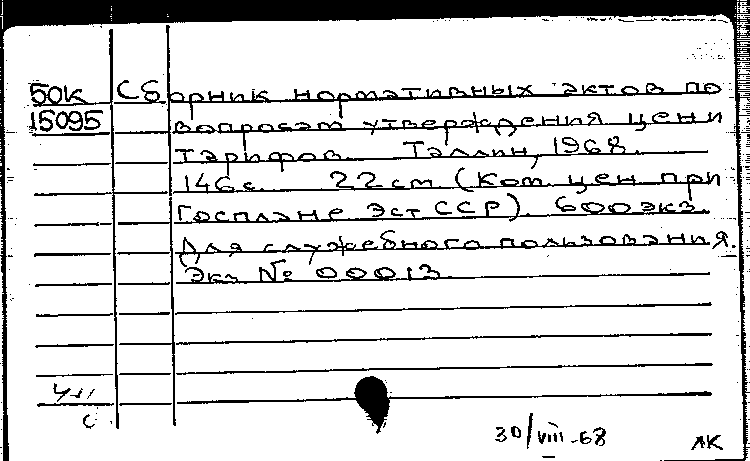 50К Сборник нормативных актов по
15095 вопросам утверждения цен и
тарифов. Таллин, 1968.
146с. 22 см (Ком. цен при
Госплане Эст ССР). 600 экз.
Для служебного пользования.
Экз № 00013.
30/VIII-68
ЛК